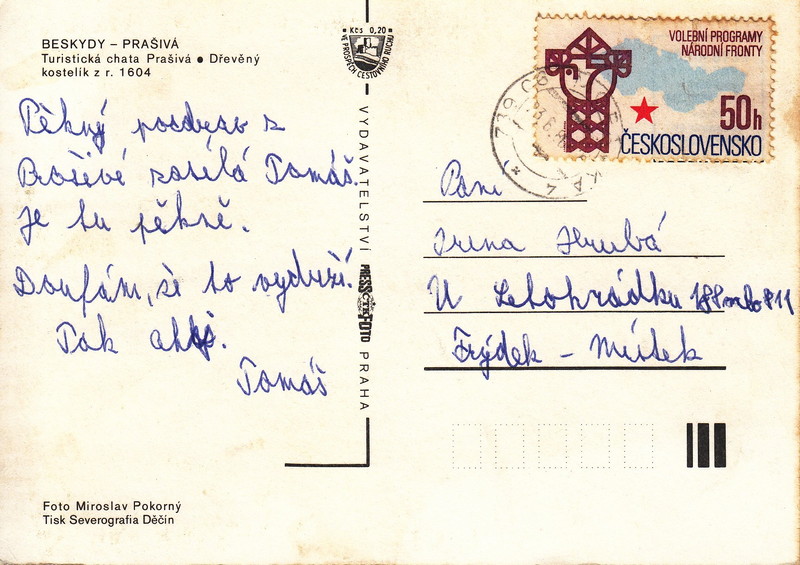 BESKYDY – PRAŠIVÁ
Turistická chata Prašivá ● Dřevěný
kostelík z r. 1604
Pěkný pozdrav z
Prašivé zasílá Tomáš.
Je tu pěkně.
Doufám, že to vydrží.
Tak ahoj.
Tomáš
Foto Miroslav Pokorný
Tisk Severografia Děčín
Kčs 0,20
VE PROSPĚCH CESTOVNÍHO RUCHU
VYDAVATELSTVÍ PRESSFOTO PRAHA
ČTK
VOLEBNÍ PROGRAMY
NÁRODNÍ FRONTY
50h
ČESKOSLOVENSKO
Paní
Irena Hrubá
U Letohrádku 188 nebo 811
Frýdek – Místek